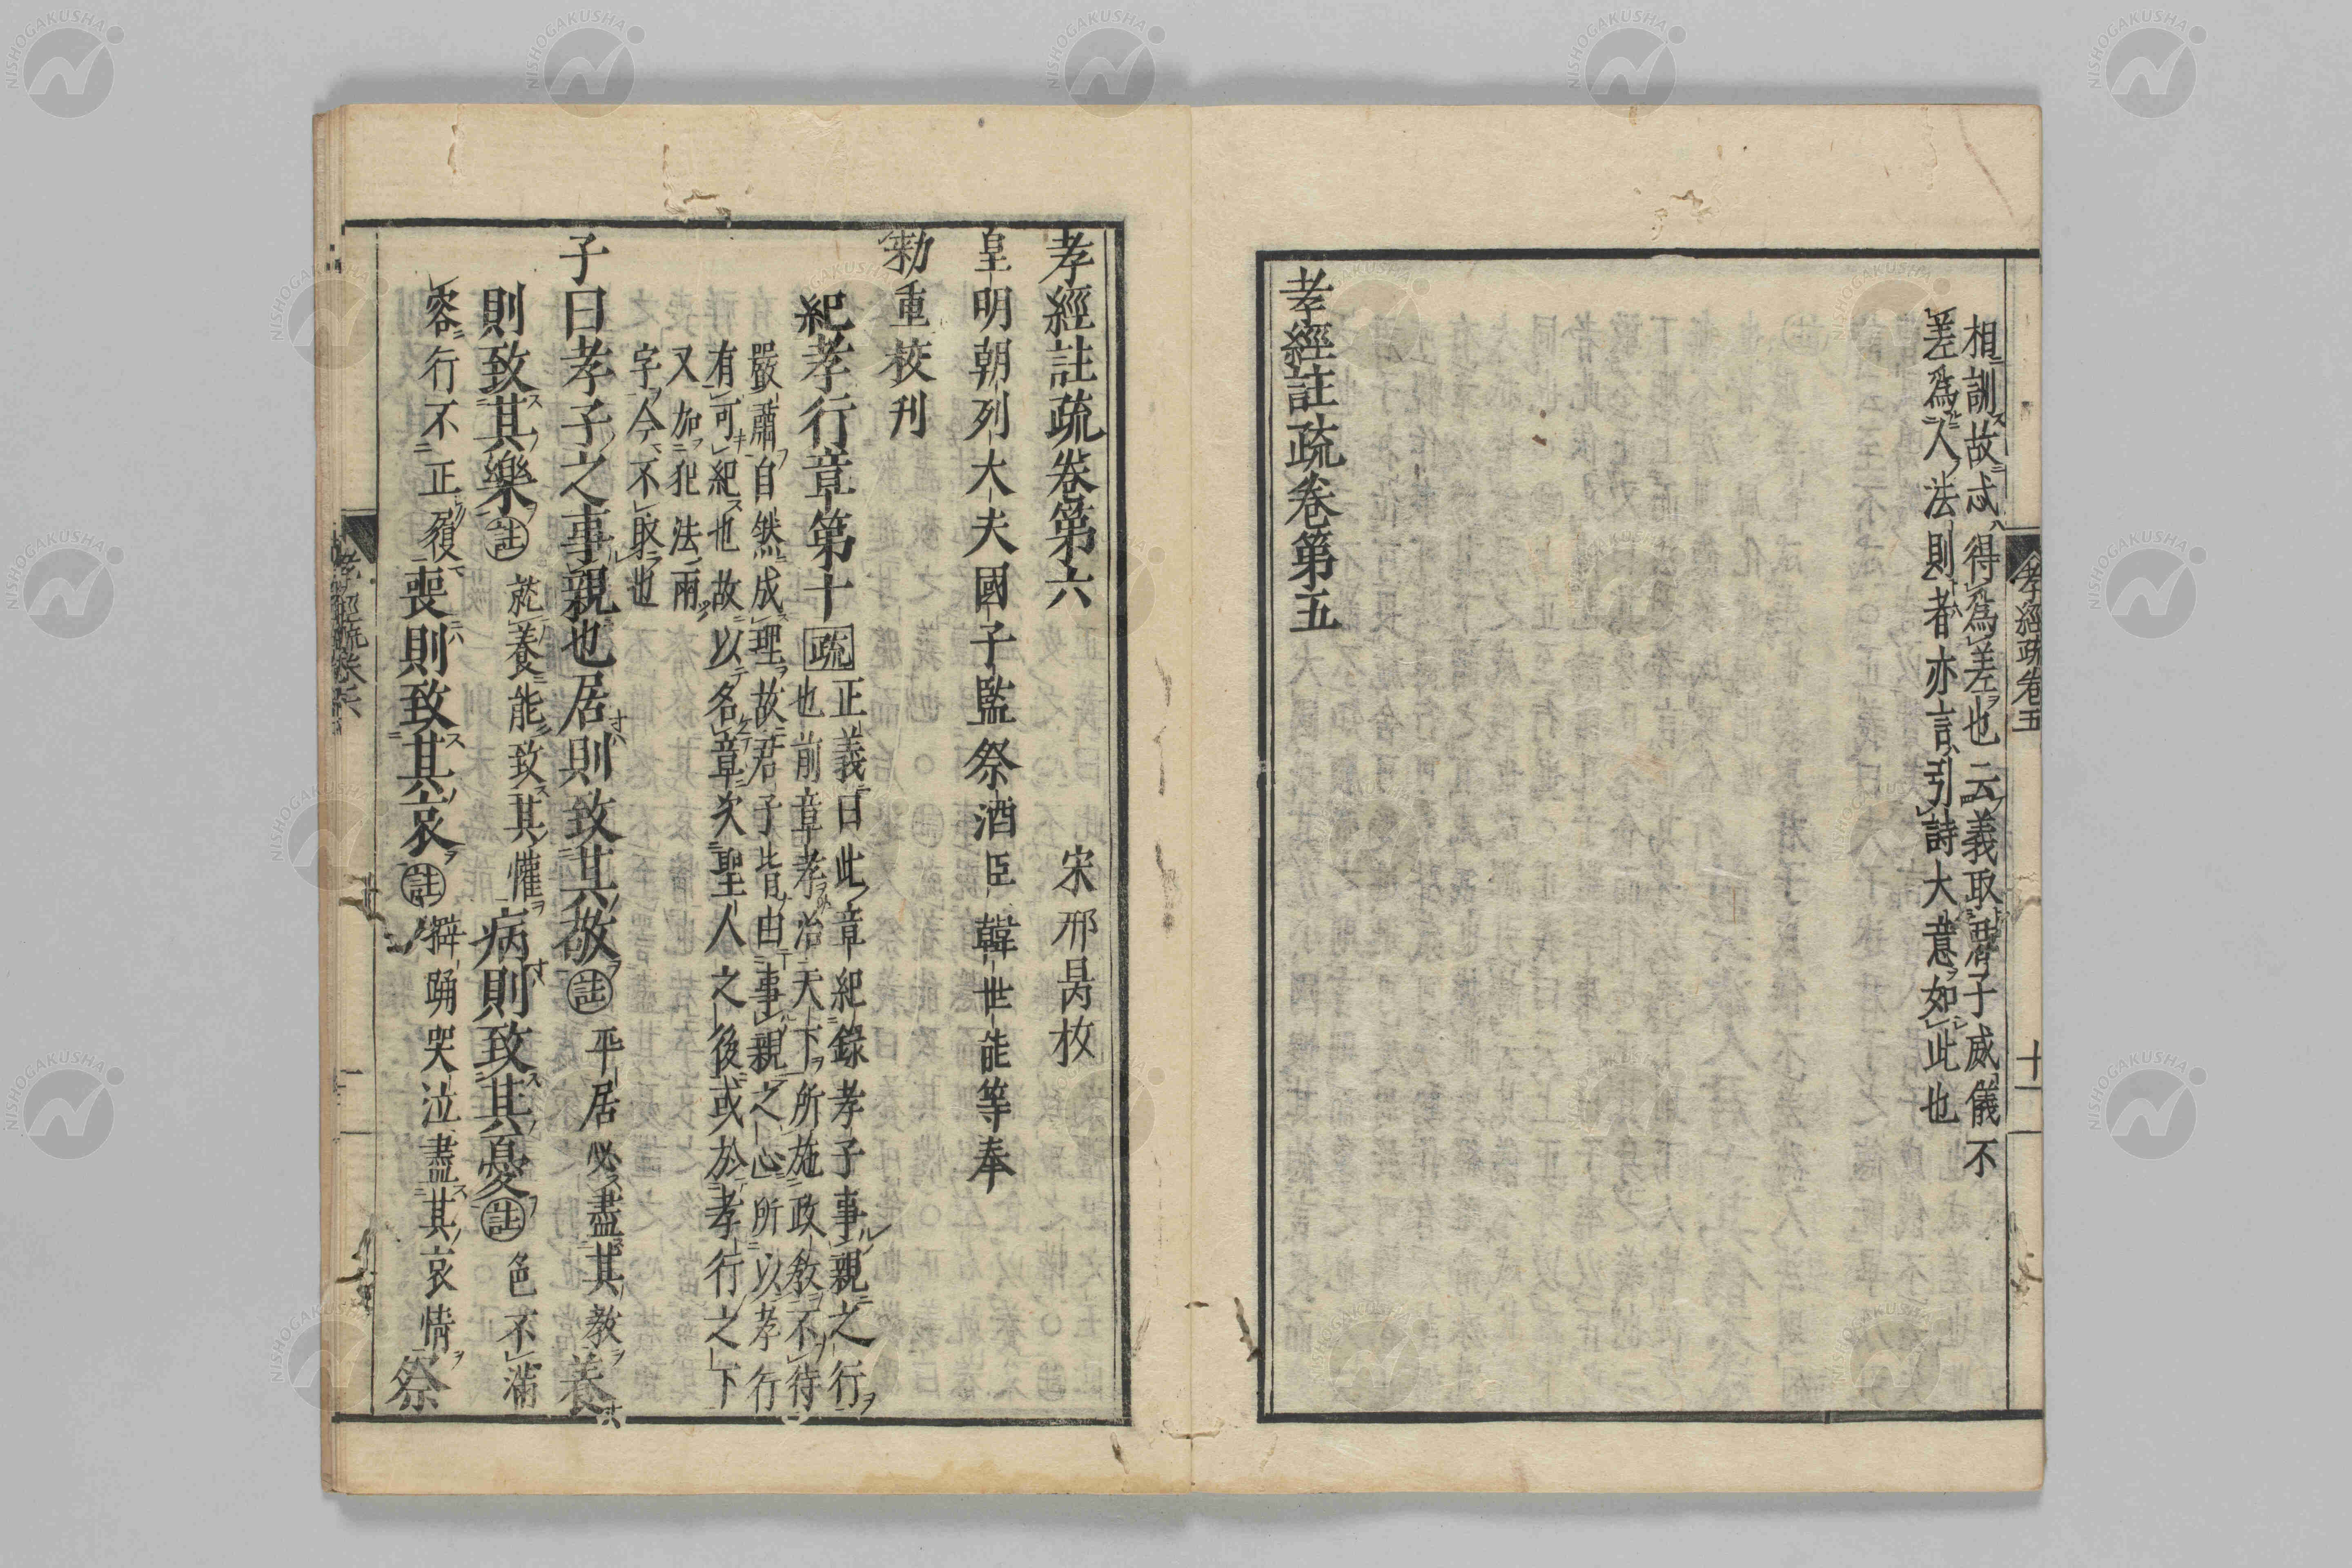 相訓故忒得爲差也云義取君子威儀不
差爲人法則者亦言引詩大意如此也
孝經註疏卷第五
孝經疏卷五
十一
孝經註疏卷第六
宋邢昺校
皇明朝列大夫國子監祭酒臣韓世能等奉
勅重校刊
紀孝行章第十疏
正義曰此章紀錄孝子事親之行
也前章孝治天下所施政教不待
嚴肅自然成理故君子皆由事親之心所以孝行
有可紀也故以名章次聖人之後或於孝行之下
又加犯法兩
字今不取也
子曰孝子之事親也居則致其敬註平居必盡其敎養
則致其樂註就養能致其懽病則致其憂註色不滿
容行不正履喪則致其哀註擗踊哭泣盡其哀情祭
NISHOGAKUSHA